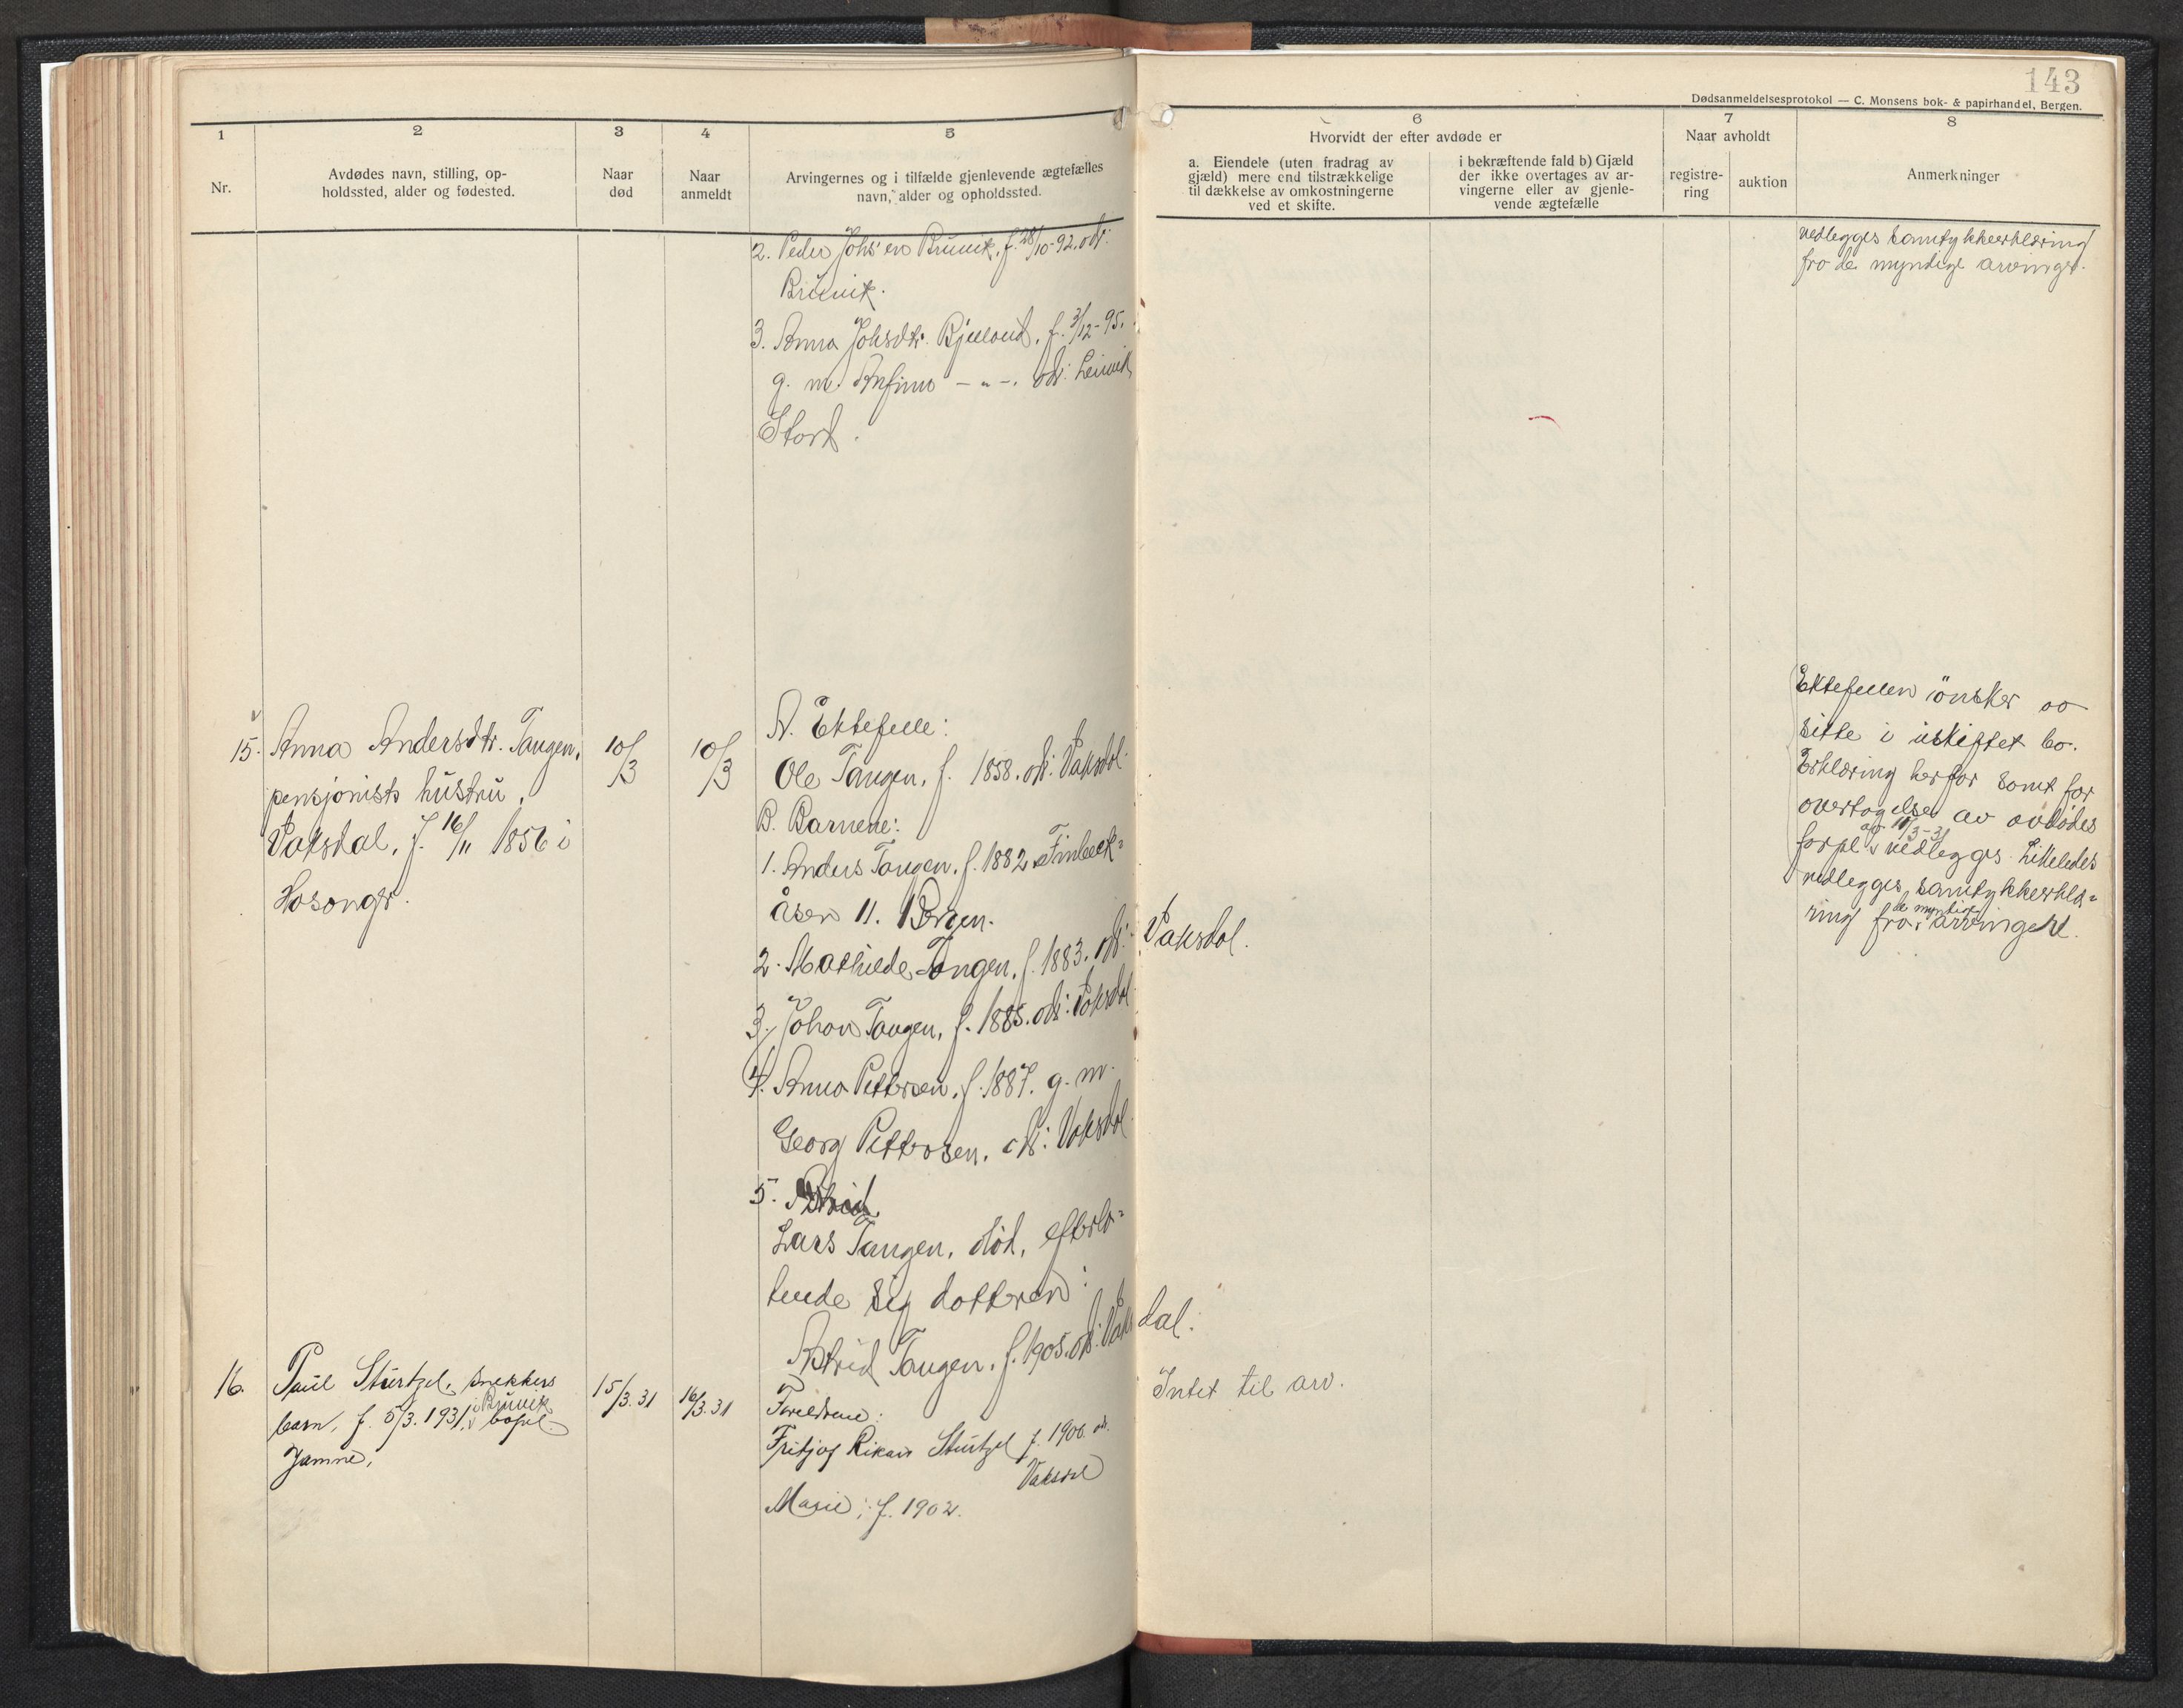 143
Dødsanmeldelsesprotokol — C. Monsens bok- & papirhandel, Bergen.
1
2
3
4
5
6
7
8
Nr.
Avdødes navn, stilling, op-
holdssted, alder og fødested.
Naar
død
Naar
anmeldt
Arvingernes og i tilfælde gjenlevende ægtefælles
navn, alder og opholdssted.
Hvorvidt der efter avdøde er
a. Eiendele (uten fradrag av
gjæld) mere end tilstrækkelige
til dækkelse av omkostningerne
ved et skifte.
i bekræftende fald b) Gjæld
der ikke overtages av ar-
vingerne eller av gjenle-
vende ægtefælle
Naar avholdt
registre-
ring
auktion
Anmerkninger
2. Peder Johs'en Bruvik, f. 28/10-92. ods:
Bruvik.
3. Anna Johsdtr. Bjelland, f. 3/12-95.
g. m. Anfinn — " —. ods: Leirvik
Stord.
vedlegges samtykkeerklæring
fra de myndige arvinger.
15. Anna Andersdtr. Tangen,
pensjonists hustru,
Vaksdal, f. 16/11 1856 i
Hosanger.
10/3
10/3
A. Ektefelle:
Ole Tangen, f. 1858. ods: Vaksdal.
B. Barnene:
1. Anders Tangen, f. 1882
åsen 11. Bergen.
2. Mathilde Tangen, f. 1883. ods: Vaksdal.
3. Johan Tangen, f. 1885. ods: Vaksdal
4. Anna Pettersen, f. 1887. g. m.
Georg Pettersen, ods: Vaksdal.
5. Astrid
Lars Tangen, død, efterla-
tende sig datteren:
Astrid Tangen, f. 1905. ods: Vaksdal.
Ektefellen ønsker aa
sitte i uskiftet bo.
Erklæring herfor samt for
overtagelse av avdødes
forpl. av 10/3-31 vedlegges. Likeledes
vedlegges samtykkeerklæ-
ring fra de myndige arvinger.
16. Paul Stürtzel, snekkers
barn, f. 5/3. 1931, i Bruvik bopel
Jamne,
15/3. 31
16/3. 31
Foreldrene:
Fritjof Rikard Stürtzel f. 1906. ods.
Vaksdal
Marie, f. 1902.
Intet til arv.